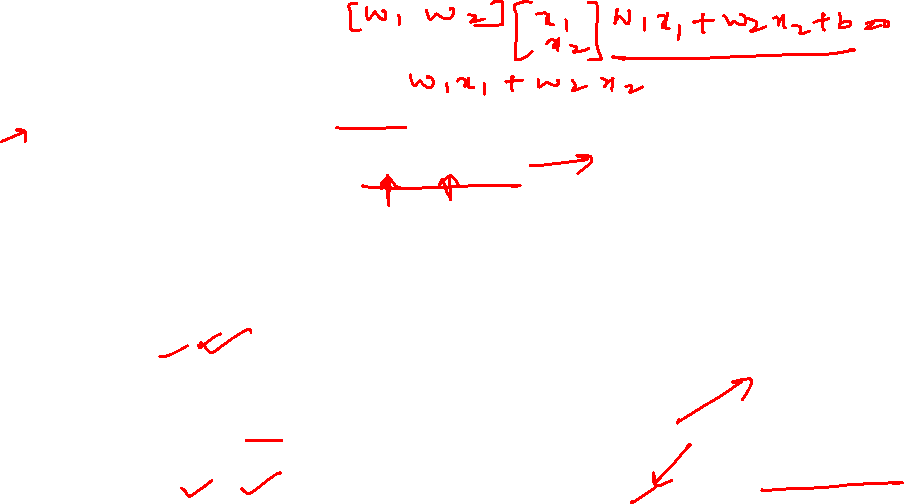 [w₁ w₂] [x₁ x₂] w₁x₁ + w₂x₂ + b =
w₁x₁ + w₂x₂